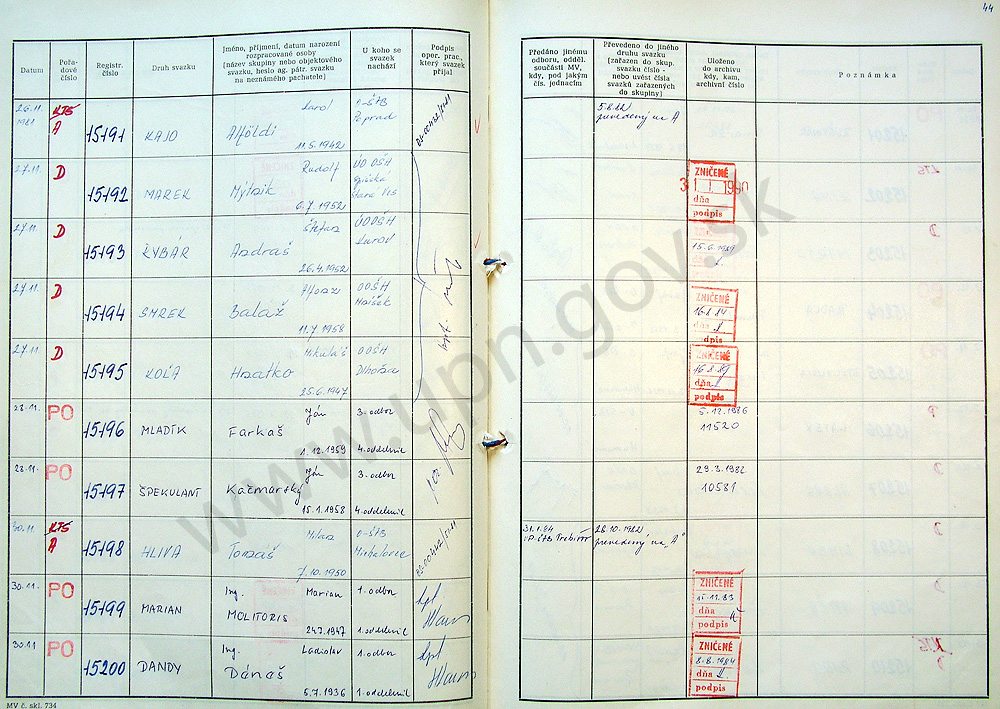 44
Datum
Pořa-
dové
číslo
Registr.
číslo
Druh svazku
Jméno, příjmení, datum narození
rozpracované osoby
(název skupiny nebo objektového
svazku, heslo ag. pátr. svazku
na neznámého pachatele)
U koho se
svazek
nachází
Podpis
oper. prac.,
který svazek
přijal
Předáno jinému
odboru, odděl.
součásti MV,
kdy, pod jakým
čís. jednacím
Převedeno do jiného
druhu svazku
(zařazen do skup.
svazku číslo -
nebo uvést čísla
svazků zařazených
do skupiny)
Uloženo
do archivu
kdy, kam,
archivní číslo
Poznámka
26.11.
1981
KTS
A
15191
KAJO
Karol
Alföldi
11.5.1942
O-ŠTB
Poprad
5.8.82
prevedený na A
27.11.
D
15192
MAREK
Rudolf
Mýtnik
6.7.1952
ÚO OŠH
Spišská
Stará Ves
ZNIČENÉ
31.1.1990
dňa
podpis
27.11.
D
15193
RYBÁR
Štefan
Andraš
26.4.1952
ÚO OŠH
15.6.1989
27.11.
D
15194
SMREK
Balaž
11.7.1958
OOŠH
ZNIČENÉ
16.8.89
dňa
podpis
27.11.
D
15195
KOĽA
Mikuláš
Hnatko
25.6.1947
OOŠH
ZNIČENÉ
16.8.89
dňa
podpis
28.11.
PO
15196
MLADÍK
Ján
Farkaš
1.12.1959
3. odbor
4. oddelenie
5.12.1986
11520
28.11.
PO
15197
ŠPEKULANT
Ján
Kačmarský
15.1.1958
3. odbor
4. oddelenie
29.3.1982
10581
30.11.
KTS
A
15198
HLIVA
Milan
Tomáš
7.10.1950
O-ŠTB
Michalovce
31.1.84
28.10.1982
prevedený na „A"
30.11.
PO
15199
MARIAN
Ing. Marian
MOLITORIS
24.7.1947
1. odbor
1. oddelenie
ZNIČENÉ
15.11.83
dňa
podpis
30.11
PO
15200
DANDY
Ing. Ladislav
Dánaš
5.7.1936
1. odbor
1. oddelenie
ZNIČENÉ
8.8.1984
dňa
podpis
MV č. skl. 734
www.upn.gov.sk